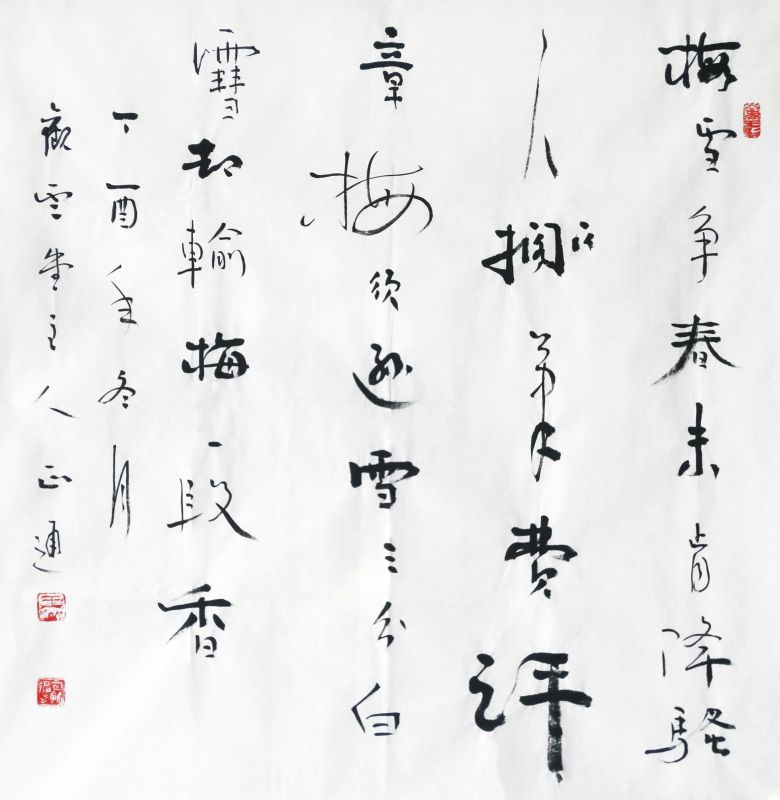 梅雪争春未肯降騷
人擱筆费评
章梅须逊雪三分白
雪却輸梅一段香
丁酉年冬月
观雲堂主人正通